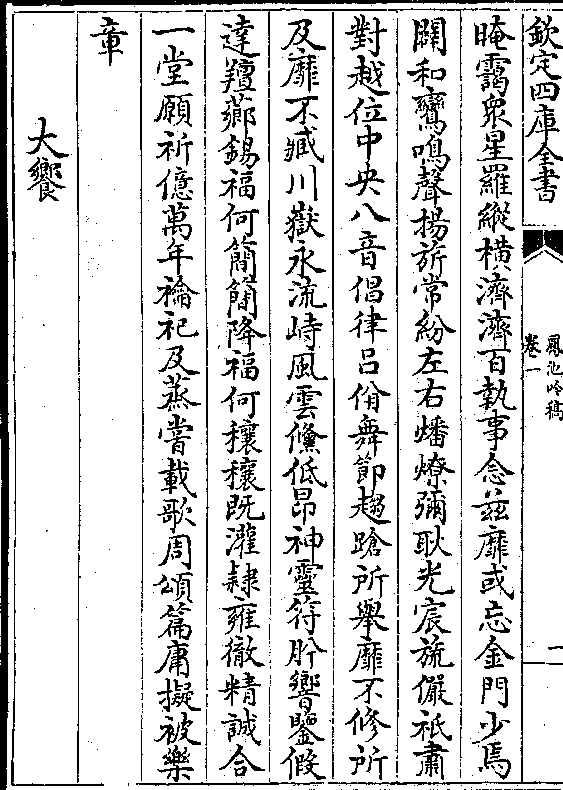 欽定四庫全書
鳳池吟稿
卷一
一
晻靄衆星羅縱橫濟濟百執事念兹靡或忘金門少焉
闢和鸞鳴聲揚旂常紛左右燔燎彌耿光宸旒儼祗肅
對越位中央八音倡律呂佾舞節趨蹌所舉靡不修所
及靡不臧川嶽永流峙風雲儵低昂神靈符肸響鑒假
達羶薌錫福何簡簡降福何穰穰既灌隷雍徹精誠合
一堂願祈億萬年禴祀及蒸嘗載歌周頌篇庸擬被樂
章
大饗